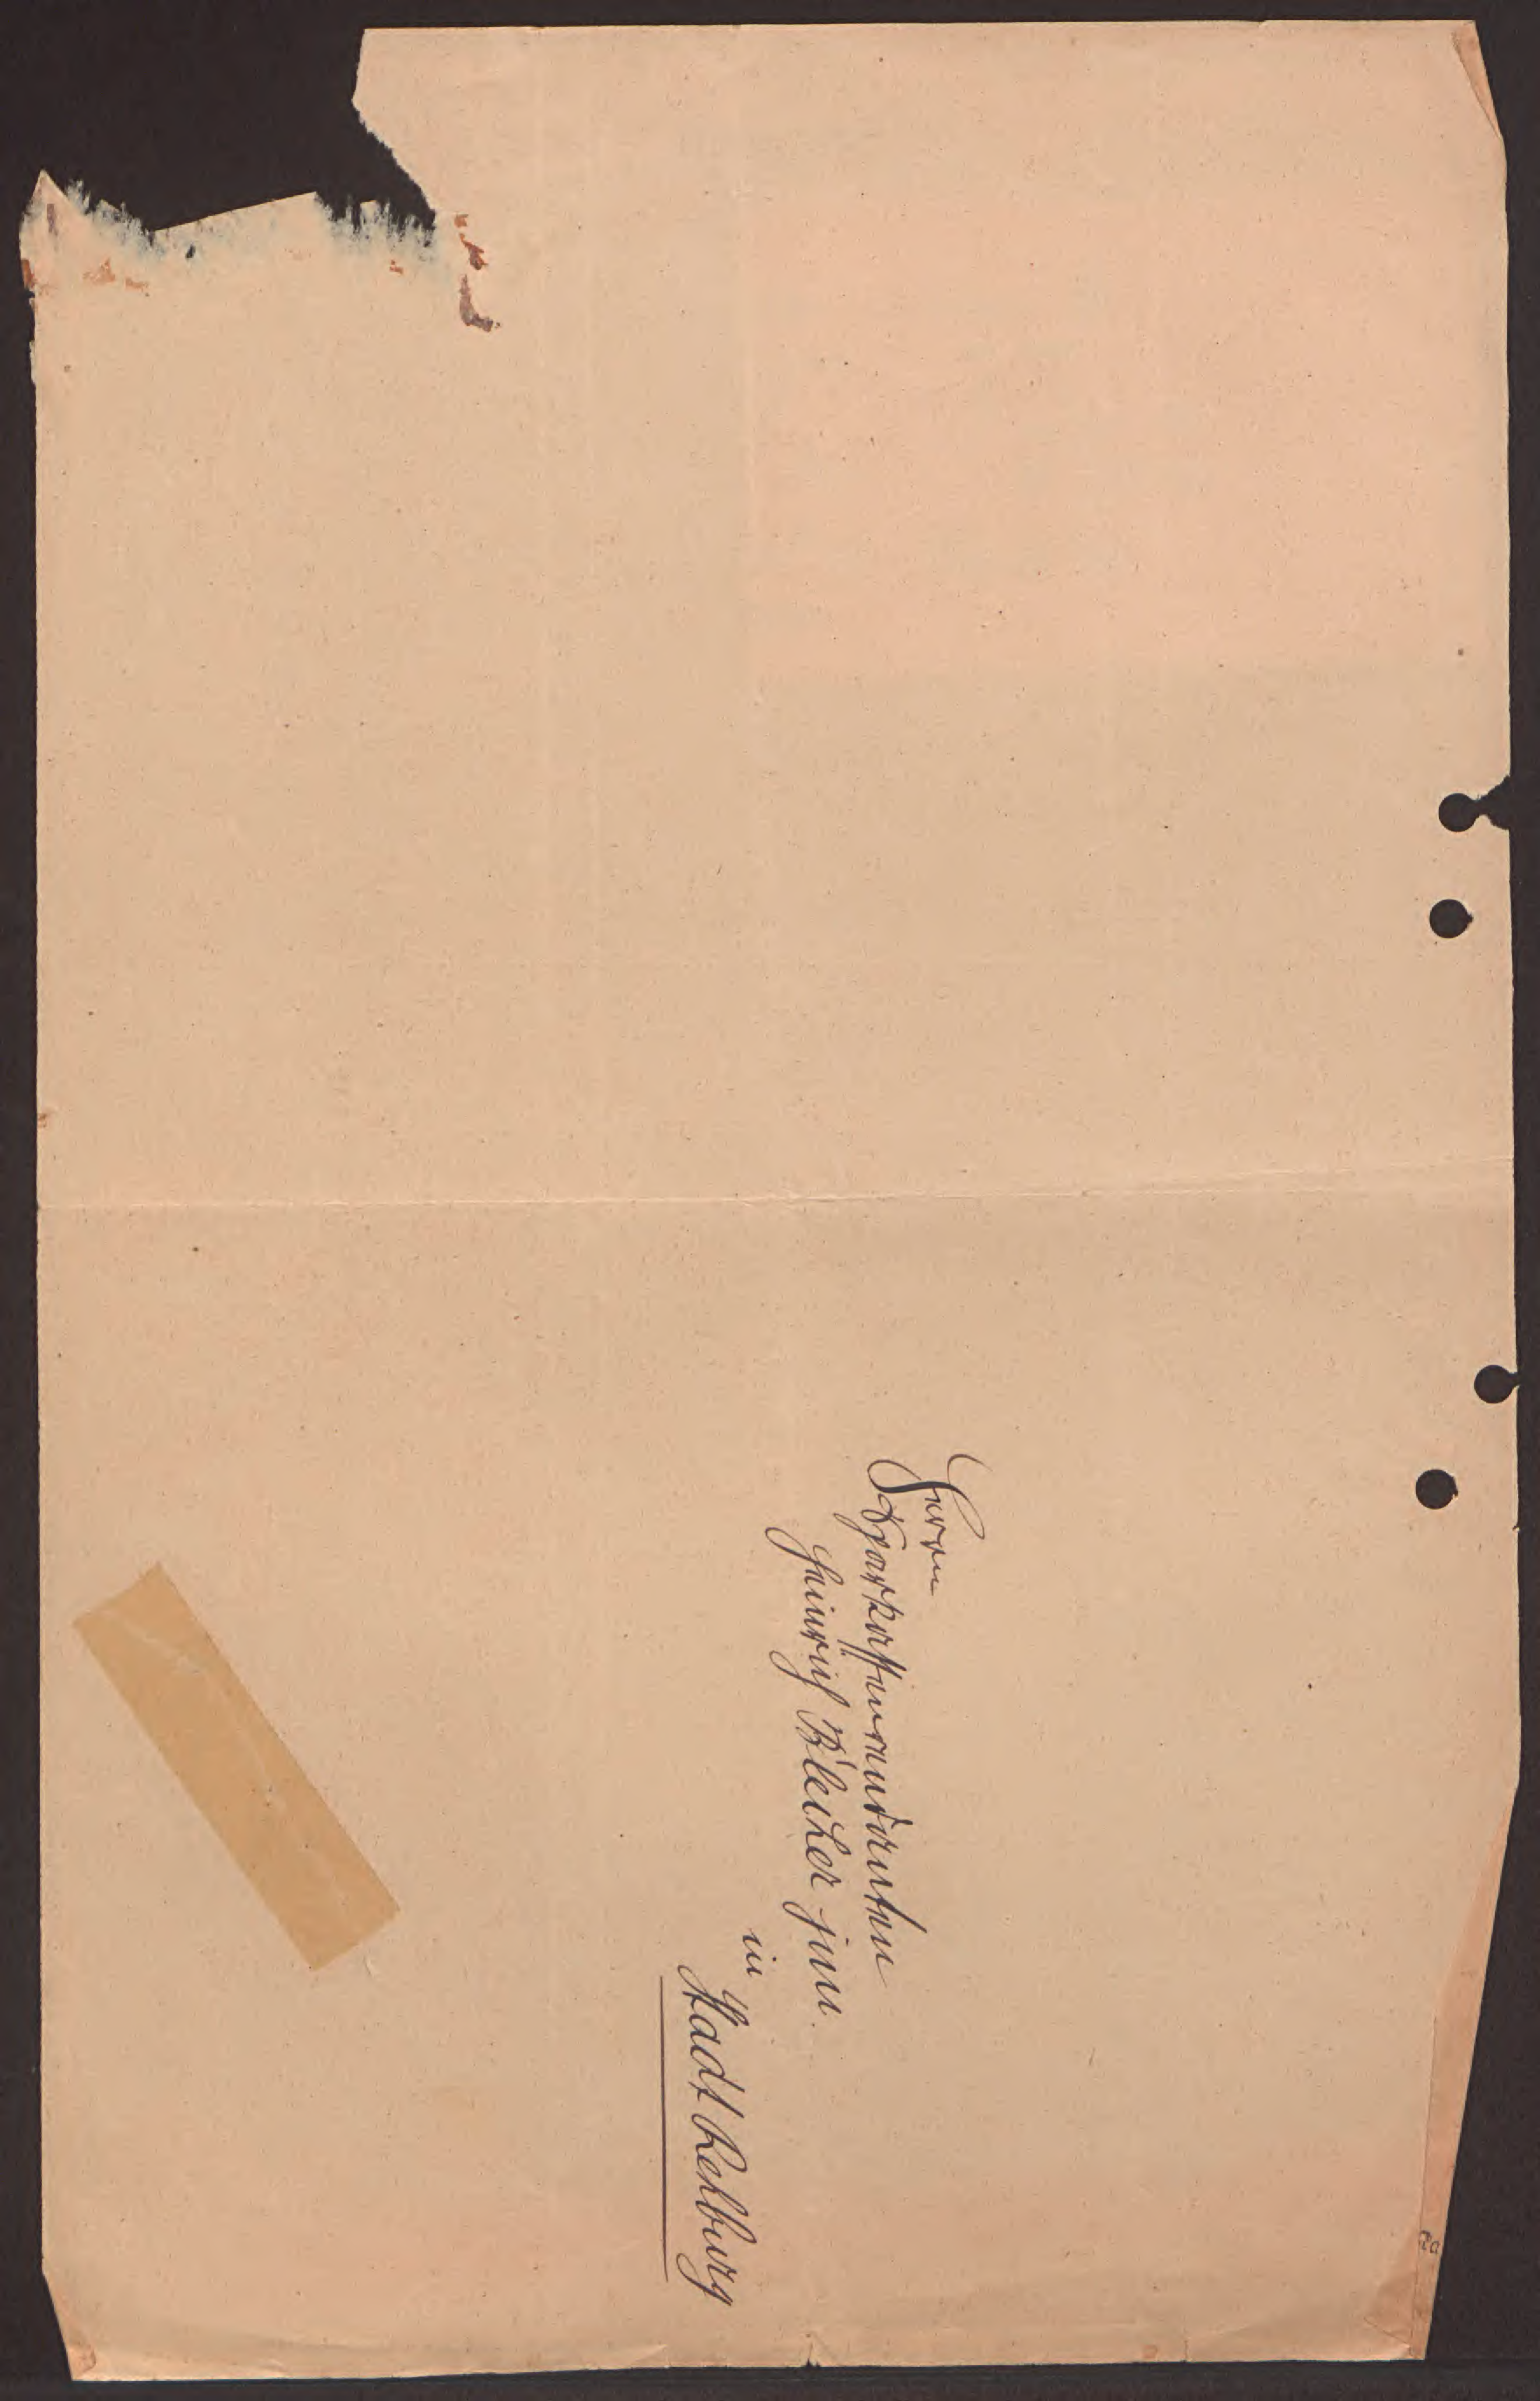 Herrn
Sparkassenrendanten
Heinrich Bleeker jun.
in
Stadt Rehburg